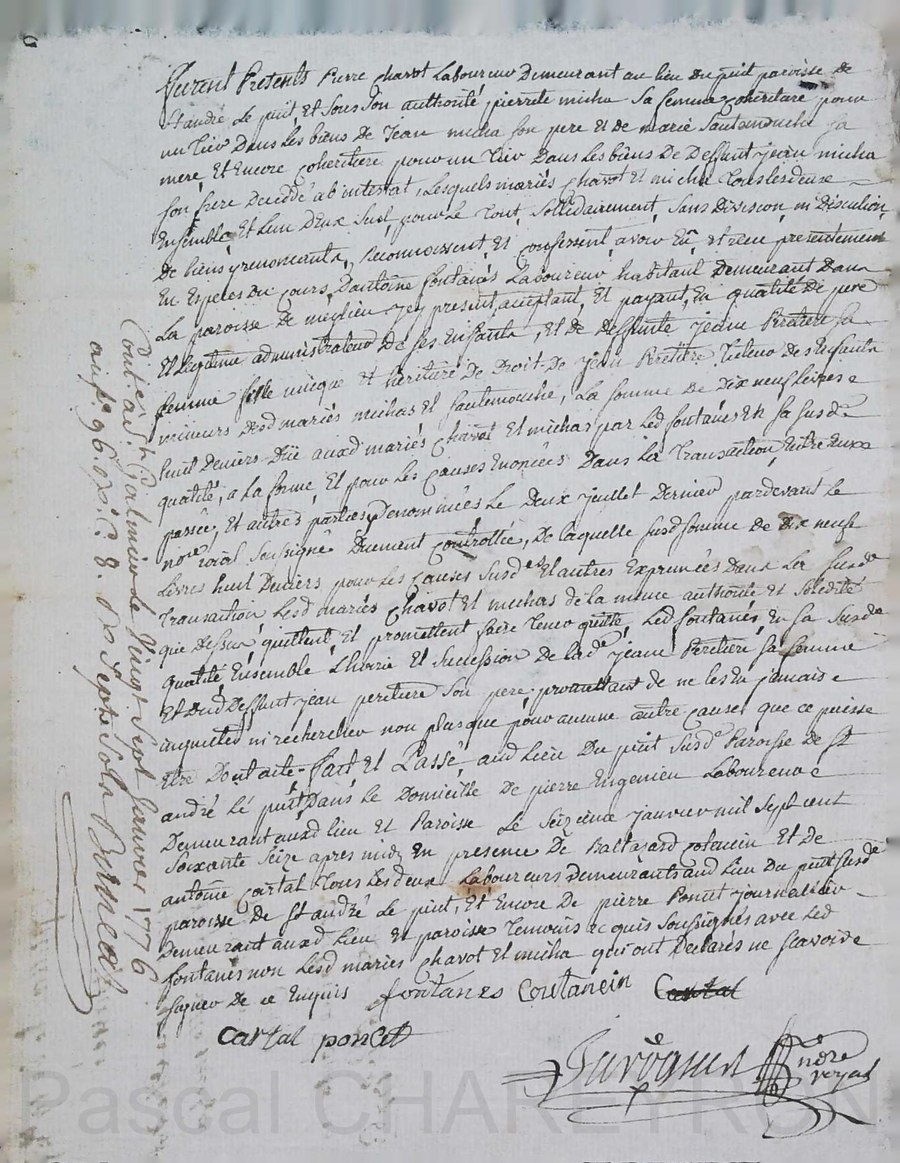 furent Presents Pierre Chavot Laboureur Demeurant au lieu du puit paroisse de
St andré Le puit, Et sous son authorité pierrete micha sa femme coheritiere pour
un tier Dans les biens De Jean micha son pere Et de marie sautemouche sa
mere, Et Encore Coheritiere pour un tier Dans Les biens De Deffunt jean micha
son frere Decedé ab intestat, Lesquels mariés Chavot Et micha tous les deux
Ensemble, Et L'un D'eux seul, pour Le tout, sollidairement, sans Division, ni Discution
De biens y renoncants, Reconnoissent Et Confessent, avoir Eû, Et reçu presentement
En Especes Du Cours, D'antoine fontanés Laboureur habitant Demeurant Dans
La paroisse De meylieu jcy present, acceptant, Et payant, En qualité De pere
Et Legitime administrateur De ses Enfants, Et De Deffunte jeanne Peretiere sa
femme fille unique Et heritiere De Droit De jean Peretiere Tuteur des Enfants
mineurs Desd mariés michas Et sautemouche, La somme De Dix neuf Livres
huit Deniers Düe auxd mariés Chavot Et michas par Led fontanés En sa susde
qualité, a La forme Et pour Les Causes Enoncées Dans La Transaction Entre Eux
passée, Et autres parties Denommées Le Deux juillet Dernier pardevant Le
nore roial soussigné Duement Controllée, De laquelle susd somme De Dix neuf
Livres huit Deniers pour Les Causes susdes Et autres Exprimées Dans La susde
Transaction Lesd mariés Chavot Et michas de la meme authorité et solidité
que Dessus, quittent, Et promettent faire tenir quitte, Led fontanés En sa susde
qualité, Ensemble L'hoirie Et succession De lade jeanne Peretiere sa femme
Et Dud Deffunt jean peretiere son pere promettant de ne les En jamais
inquieter ni rechercher non plus que pour aucune autre cause que ce puisse
Etre Dont acte fait Et Passé, aud Lieu Du puit susd Paroisse De St
andré Le puit Dans Le Domicille De pierre Laboureur
Demeurant auxd lieu Et Paroisse Le seizieme janvier mil sept cent
soixante seize apres midy En presence De Baltasard Et De
antoine Cartal tous Les deux Laboureurs Demeurants aud Lieu Du puit susde
paroisse De St andré Le puit, Et Encore De pierre Poncet journalier
Demeurant auxd Lieu Et paroisse Temoins requis soussignés avec Led
fontanés non Lesd mariés Chavot Et micha qui ont Declarés ne sçavoir
signer De ce Enquis fontanes Coutanein Cartal
cartal poncet
nore royal
Con.le a St Galmier Le Vingt sept janvier 1776
sept sols
Pascal CHAREYRON